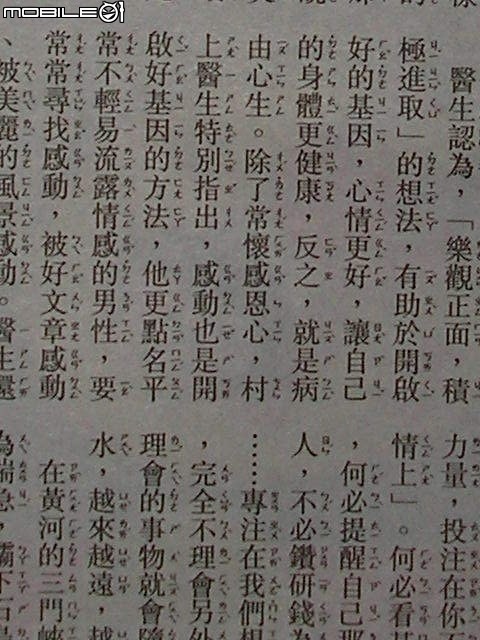 MOBILE01
醫生認為，「樂觀正面，積
極進取」的想法，有助於開啟
好的基因，心情更好，讓自己
的身體更健康，反之，就是病
由心生。除了常懷感恩心，村
上醫生特別指出，感動也是開
啟好基因的方法，他更點名平
常不輕易流露情感的男性，要
常常尋找感動，被好文章感動
、被美麗的風景感動。醫生還
力量，投注在你
情上」。何必看
，何必提醒自己
人，不必鑽研錢為
……專注在我們想
，完全不理會另外
理會的事物就會隨
水，越來越遠，越
在黃河的三門峽
為湍急，霸下石